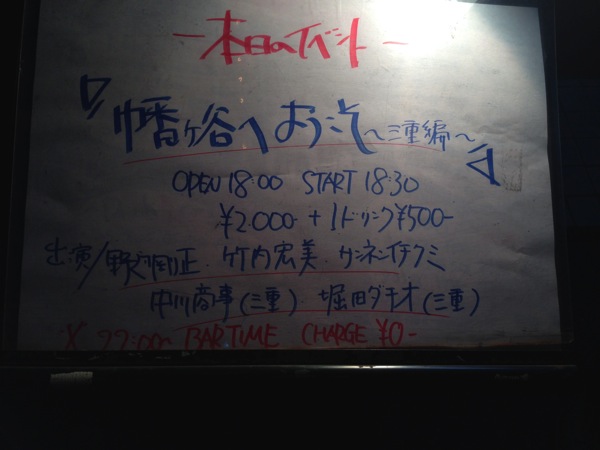 －本日のイベント－
『幡ヶ谷へようこそ～三重編～』
OPEN 18:00 START 18:30
¥2.000- + 1ドリンク¥500-
出演/ 竹内宏美. サンネンイチクミ
中川商事(三重). 堀田ダチオ(三重)
※ 22:00～ BAR TIME CHARGE ¥0-